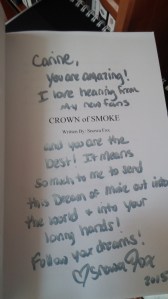 Carine,
you are amazing!
I love hearing from
my new fans
CROWN of SMOKE
Written By:
and you are the
best! It means
so much to me to send
this Crown of Smoke out into
the world & into your
loving hands!
Follow your dreams!
2015